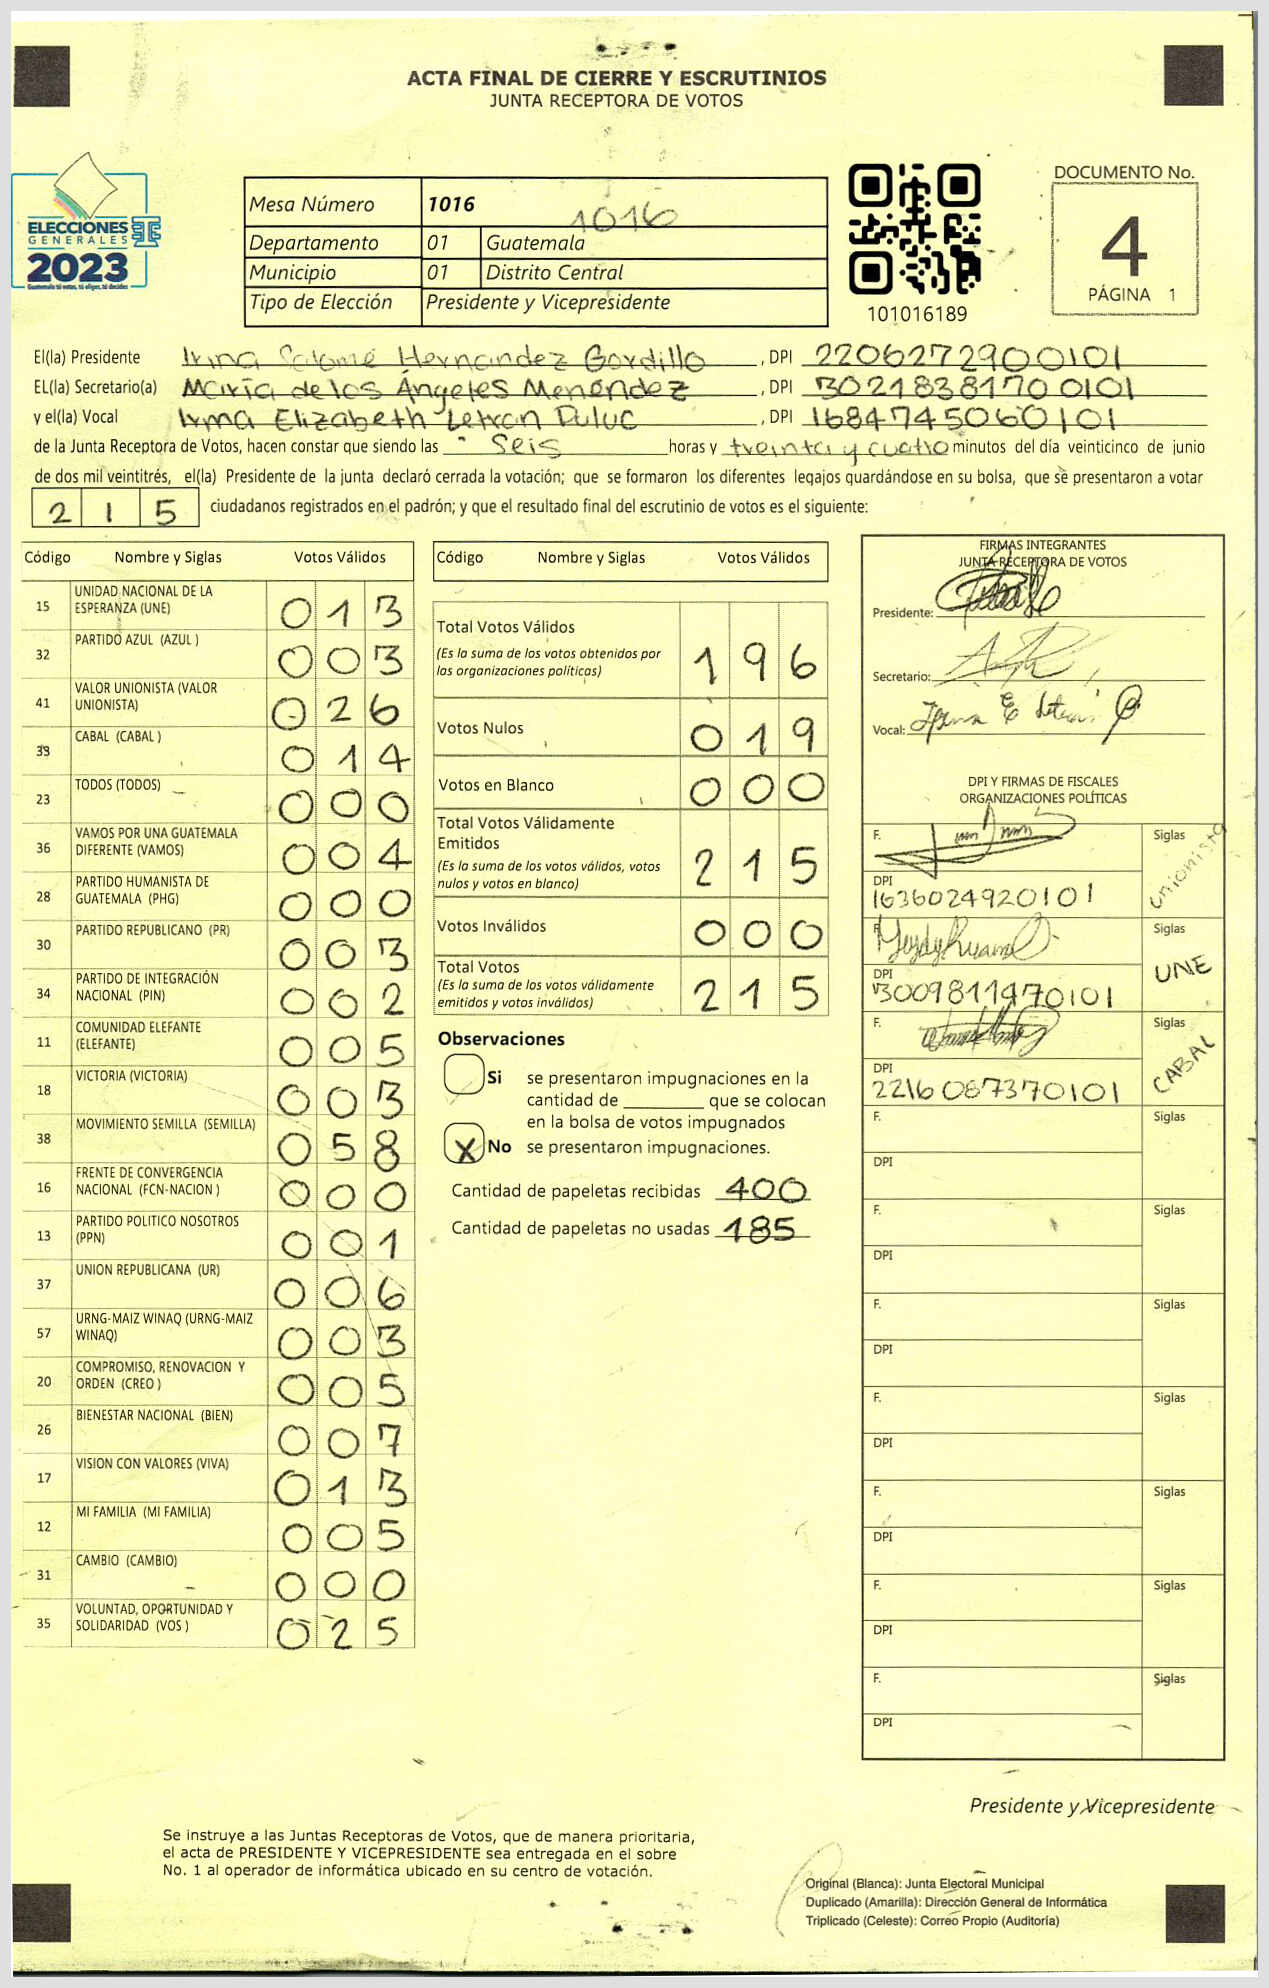 ACTA FINAL DE CIERRE Y ESCRUTINIOS
JUNTA RECEPTORA DE VOTOS
ELECCIONES
GENERALES
2023
Guatemala tú votas, tú eliges, tú decides
Mesa Número 1016 1016
Departamento 01 Guatemala
Municipio 01 Distrito Central
Tipo de Elección Presidente y Vicepresidente
101016189
DOCUMENTO No.
4
PÁGINA 1
El(la) Presidente Irma Salomé Hernandez Gordillo, DPI 2206272900101
EL(la) Secretario(a) María de los Ángeles Menéndez, DPI 3021838170101
y el(la) Vocal Irma Elizabeth Letran Puluc, DPI 1684745060101
de la Junta Receptora de Votos, hacen constar que siendo las Seis horas y treinta y cuatro minutos del día veinticinco de junio
de dos mil veintitrés, el(la) Presidente de la junta declaró cerrada la votación; que se formaron los diferentes legajos guardándose en su bolsa, que se presentaron a votar
215 ciudadanos registrados en el padrón; y que el resultado final del escrutinio de votos es el siguiente:
Código Nombre y Siglas Votos Válidos
15 UNIDAD NACIONAL DE LA ESPERANZA (UNE) 013
32 PARTIDO AZUL (AZUL ) 003
41 VALOR UNIONISTA (VALOR UNIONISTA) 026
39 CABAL (CABAL ) 014
23 TODOS (TODOS) 000
36 VAMOS POR UNA GUATEMALA DIFERENTE (VAMOS) 004
28 PARTIDO HUMANISTA DE GUATEMALA (PHG) 000
30 PARTIDO REPUBLICANO (PR) 003
34 PARTIDO DE INTEGRACIÓN NACIONAL (PIN) 002
11 COMUNIDAD ELEFANTE (ELEFANTE) 005
18 VICTORIA (VICTORIA) 003
38 MOVIMIENTO SEMILLA (SEMILLA) 058
16 FRENTE DE CONVERGENCIA NACIONAL (FCN-NACION ) 000
13 PARTIDO POLITICO NOSOTROS (PPN) 001
37 UNION REPUBLICANA (UR) 006
57 URNG-MAIZ WINAQ (URNG-MAIZ WINAQ) 003
20 COMPROMISO, RENOVACION Y ORDEN (CREO ) 005
26 BIENESTAR NACIONAL (BIEN) 007
17 VISION CON VALORES (VIVA) 013
12 MI FAMILIA (MI FAMILIA) 005
31 CAMBIO (CAMBIO) 000
35 VOLUNTAD, OPORTUNIDAD Y SOLIDARIDAD (VOS ) 025
Código Nombre y Siglas Votos Válidos
Total Votos Válidos 196
(Es la suma de los votos obtenidos por
las organizaciones políticas)
Votos Nulos 019
Votos en Blanco 000
Total Votos Válidamente
Emitidos 215
(Es la suma de los votos válidos, votos
nulos y votos en blanco)
Votos Inválidos 000
Total Votos 215
(Es la suma de los votos válidamente
emitidos y votos inválidos)
Observaciones
Si se presentaron impugnaciones en la
cantidad de ________ que se colocan
en la bolsa de votos impugnados
X No se presentaron impugnaciones.
Cantidad de papeletas recibidas 400
Cantidad de papeletas no usadas 185
FIRMAS INTEGRANTES
JUNTA RECEPTORA DE VOTOS
Presidente:
Secretario:
Vocal:
DPI Y FIRMAS DE FISCALES
ORGANIZACIONES POLÍTICAS
F. Siglas unionista
DPI
1636024920101
F. Siglas UNE
DPI
3009811970101
F. Siglas CABAL
DPI
2216087370101
F. Siglas
DPI
F. Siglas
DPI
F. Siglas
DPI
F. Siglas
DPI
F. Siglas
DPI
F. Siglas
DPI
F. Siglas
DPI
Presidente y Vicepresidente
Se instruye a las Juntas Receptoras de Votos, que de manera prioritaria,
el acta de PRESIDENTE Y VICEPRESIDENTE sea entregada en el sobre
No. 1 al operador de informática ubicado en su centro de votación.
Original (Blanca): Junta Electoral Municipal
Duplicado (Amarilla): Dirección General de Informática
Triplicado (Celeste): Correo Propio (Auditoría)